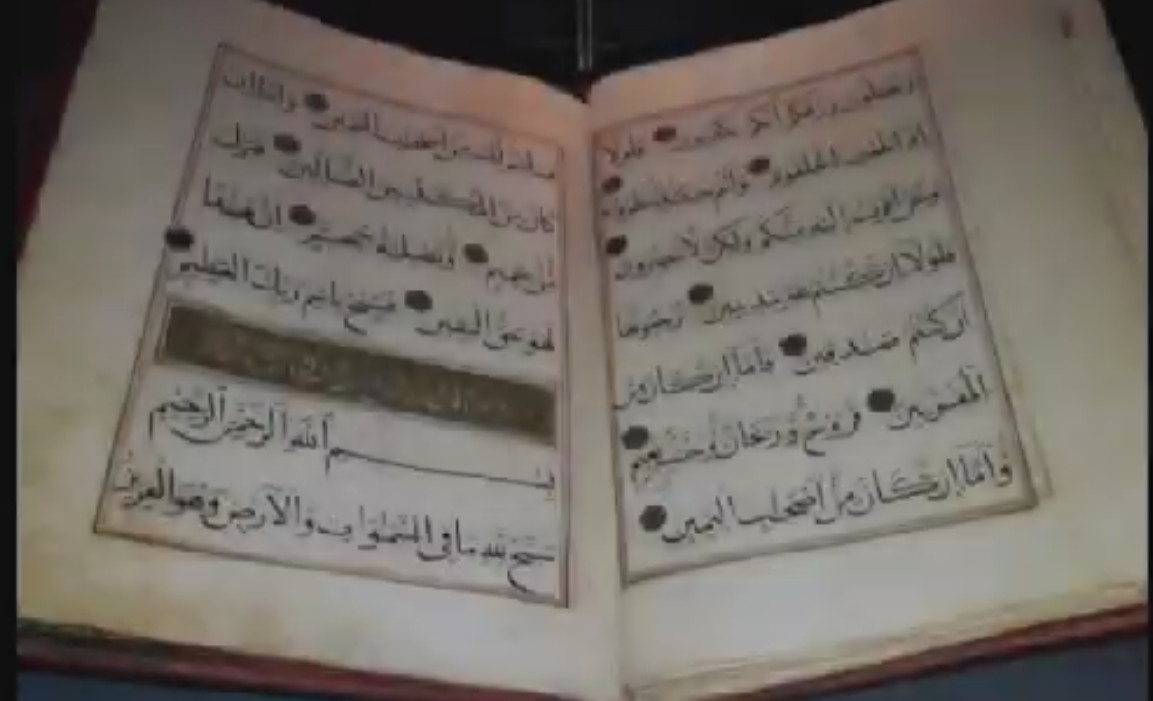 وتجعلون رزقكم أنكم تكذبون فلولا
إذا بلغت الحلقوم وأنتم حينئذ تنظرون
ونحن أقرب إليه منكم ولكن لا تبصرون
فلولا إن كنتم غير مدينين ترجعونها
إن كنتم صادقين فأما إن كان من
المقربين فروح وريحان وجنت نعيم
وأما إن كان من أصحاب اليمين
فسلام لك من أصحاب اليمين وأما إن
كان من المكذبين الضالين فنزل
من حميم وتصلية جحيم إن هذا
لهو حق اليقين فسبح باسم ربك العظيم
بسم الله الرحمن الرحيم
سبح لله ما في السماوات والأرض وهو العزيز